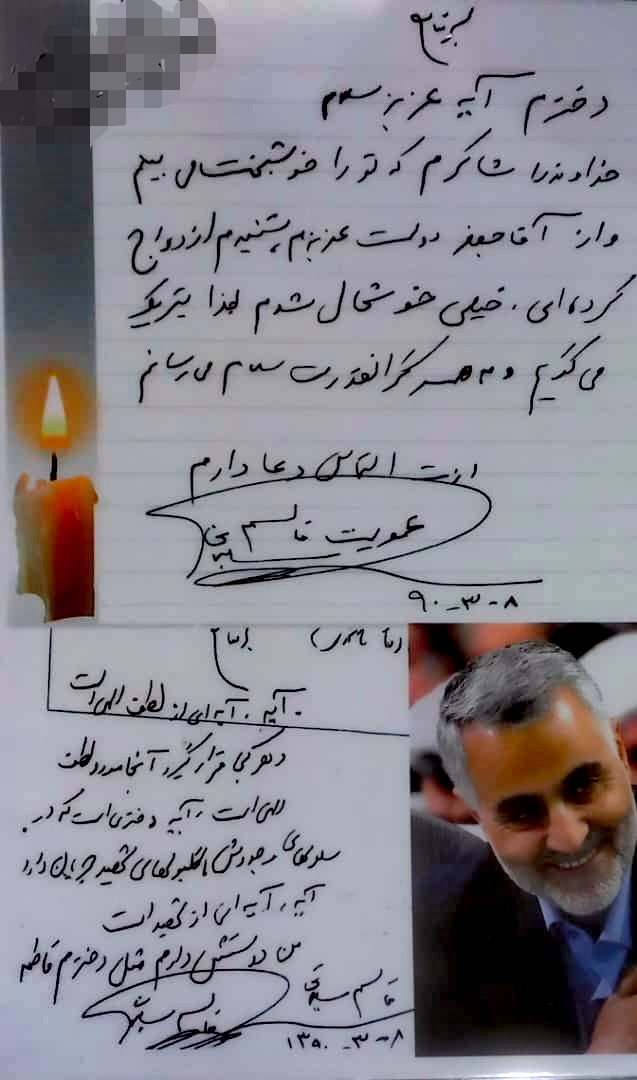 بسمه تعالی
دخترم آیه عزیز سلام
خداوند را شاکرم که تو را خوشبخت می بینم
و از آقا جعفر دوست عزیزم شنیدم ازدواج
کرده ای. خیلی خوشحال شدم لذا تبریک
می گویم و به همسر گرانقدرت سلام می رسانم
ازت التماس دعا دارم
عمویت قاسم سلیمانی
۹۰-۳-۸
آیه، آیه ای از لطف الهی است
و هر کجا قرار گیرد آنجا مورد لطف
الهی است. آیه دختری است که در
سلولهای وجودش گلبولهای شهید جریان دارد
آیه، آیه ای از شهید است
من دوستش دارم مثل دخترم فاطمه
قاسم سلیمانی
۱۳۹۰-۳-۸